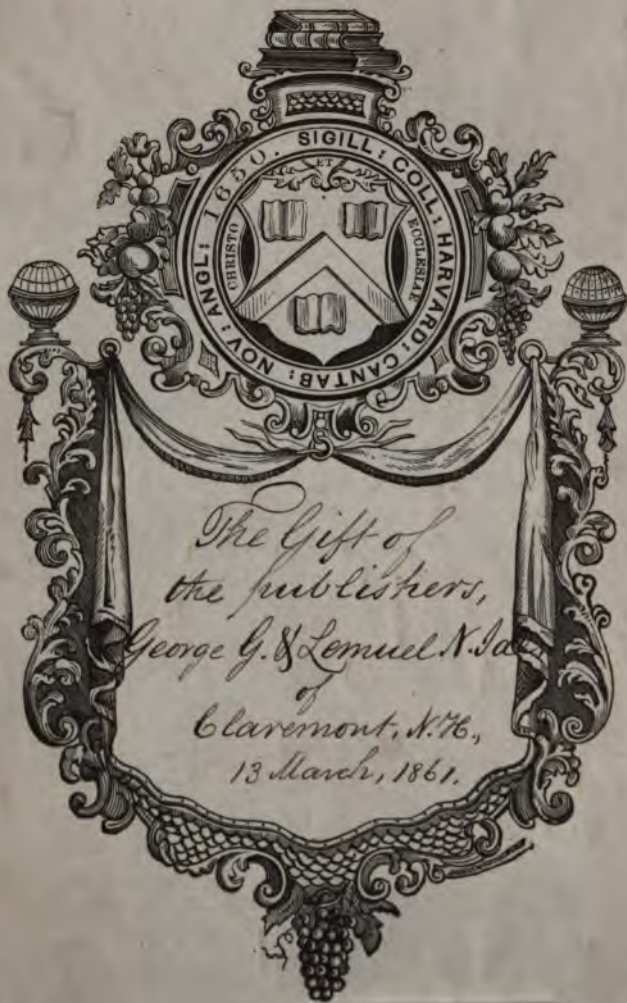 SIGILL: COLL: HARVARD: CANTAB: NOV: ANGL: 1650.
CHRISTO
ET
ECCLESIAE
The Gift of
the publishers,
George G. & Lemuel N.
of
Claremont, N.H.,
13 March, 1861.